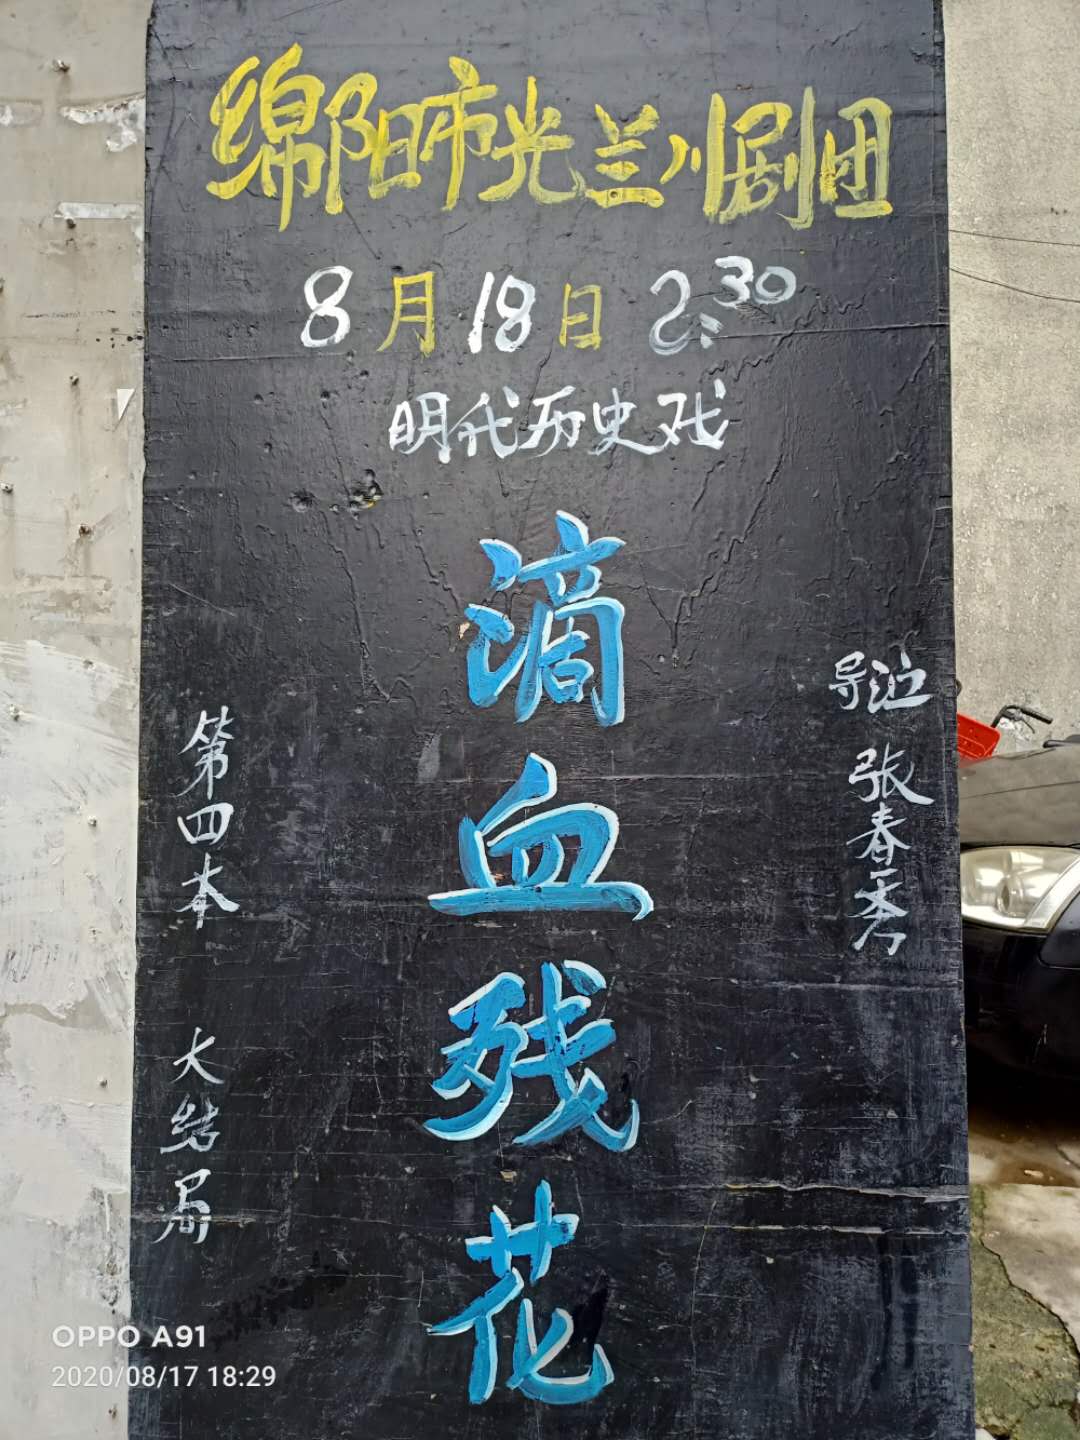 绵阳市光兰川剧团
8月18日 2:30
明代历史戏
滴血残花
导演 张春秀
第四本 大结局
OPPO A91
2020/08/17 18:29